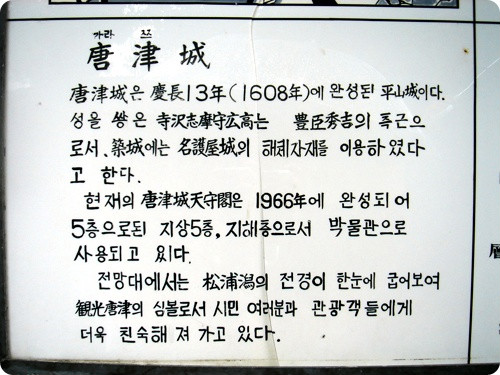 가라 쯔
唐津城
唐津城은 慶長13年(1608年)에 완성된 平山城이다.
성을 쌓은 寺沢志摩守広高는 豊臣秀吉의 측근으
로서、築城에는 名護屋城의 해체자재를 이용하였다
고 한다.
현재의 唐津城天守閣은 1966年에 완성되어
5층으로된 지상5층, 지해층으로서 박물관으로
사용되고 있다.
전망대에서는 松浦潟의 전경이 한눈에 굽어보여
観光唐津의 심볼로서 시민 여러분과 관광객들에게
더욱 친숙해 져 가고 있다.
層